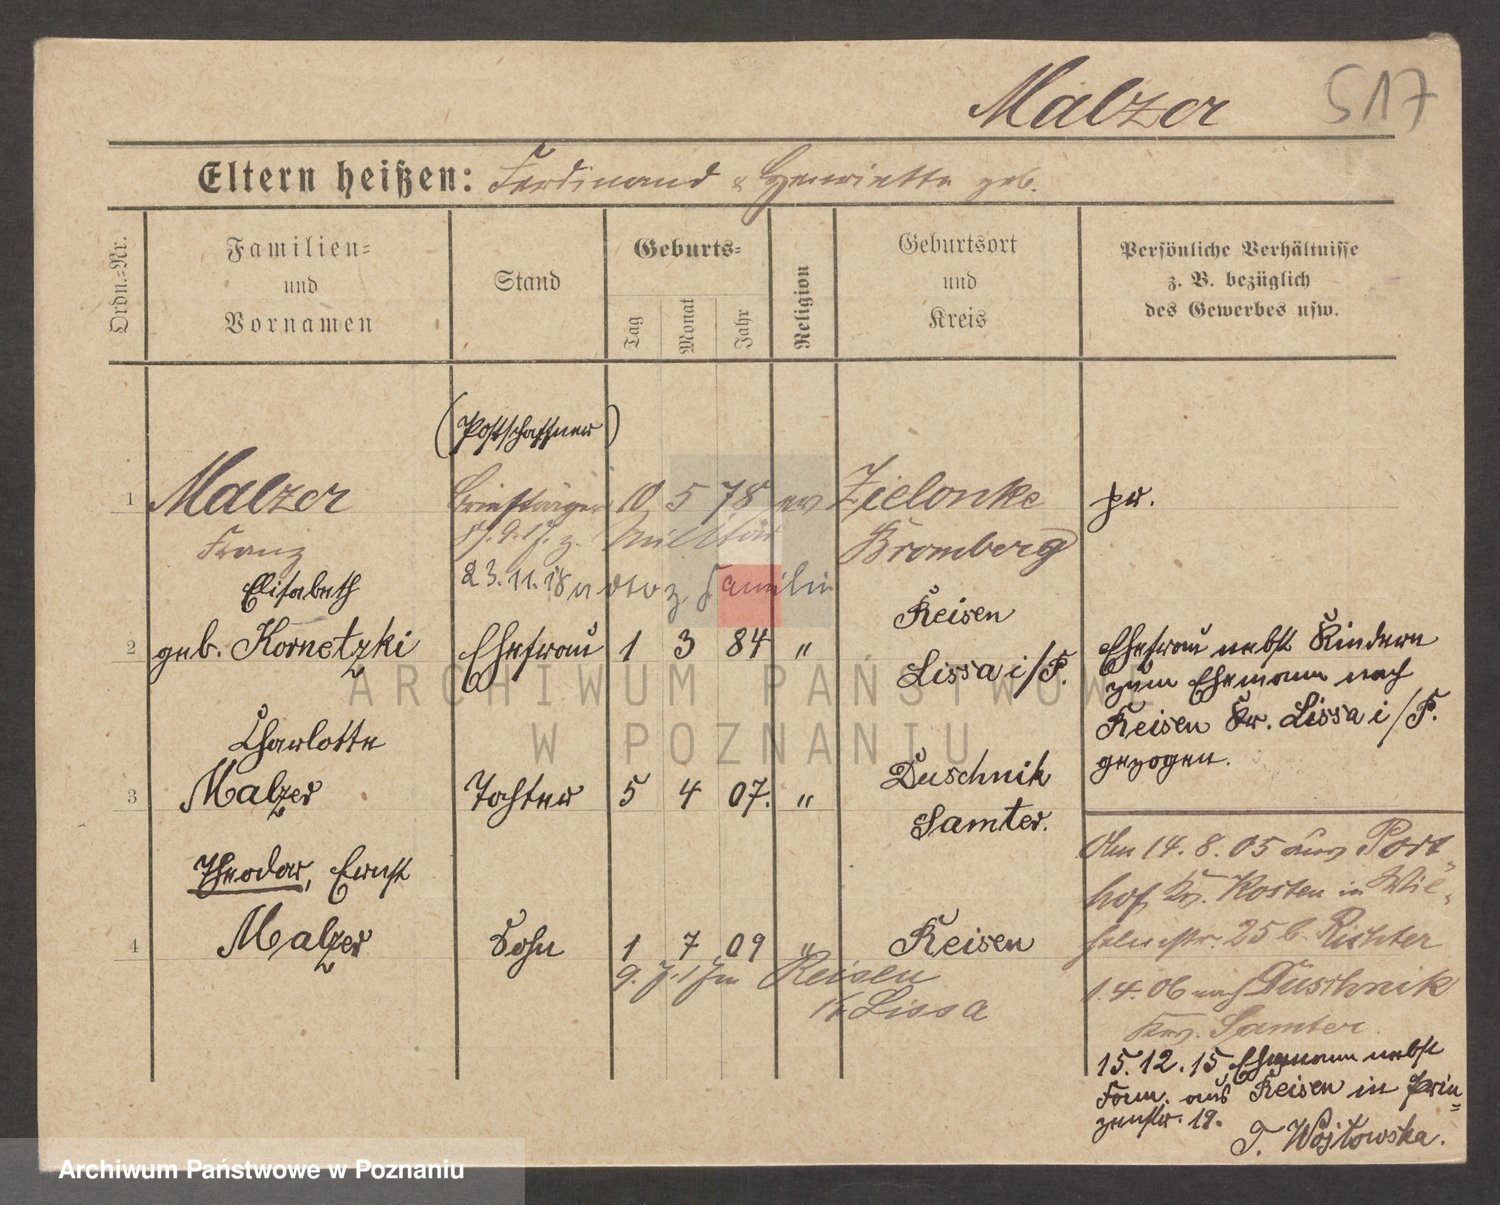 Malzer 517
Eltern heißen: Ferdinand & Henriette geb.
Ordn.=Nr.
Familien=
und
Vornamen
Stand
Geburts=
Tag
Monat
Jahr
Religion
Geburtsort
und
Kreis
Persönliche Verhältnisse
z. B. bezüglich
des Gewerbes usw.
(Postschaffner)
1 Malzer Briefträger 10 5 78 ev Zielonke pr.
Franz z. Militär Bromberg
23.11.18 Familie
Elisabeth Reisen
2 geb. Kornetzki Ehefrau 1 3 84 " Lissa i/P.
Ehefrau nebst Kindern
zum Ehemann nach
Reisen Kr. Lissa i/P.
gezogen.
Charlotte Duschnik
3 Malzer Tochter 5 4 07. " Samter.
Theodor, Ernst
4 Malzer Sohn 1 7 09 " Reisen
Reisen
Lissa
Am 14.8.05 aus Port
hof Kr. Kosten in Wil-
helmstr. 25 b. Richter
1.4.06 nach Duschnik
Krs. Samter.
15.12.15 Ehemann nebst
Fam. aus Reisen in Prin=
zenstr. 19.
T. Wojtowska.
ARCHIWUM PAŃSTWOWE
W POZNANIU
Archiwum Państwowe w Poznaniu